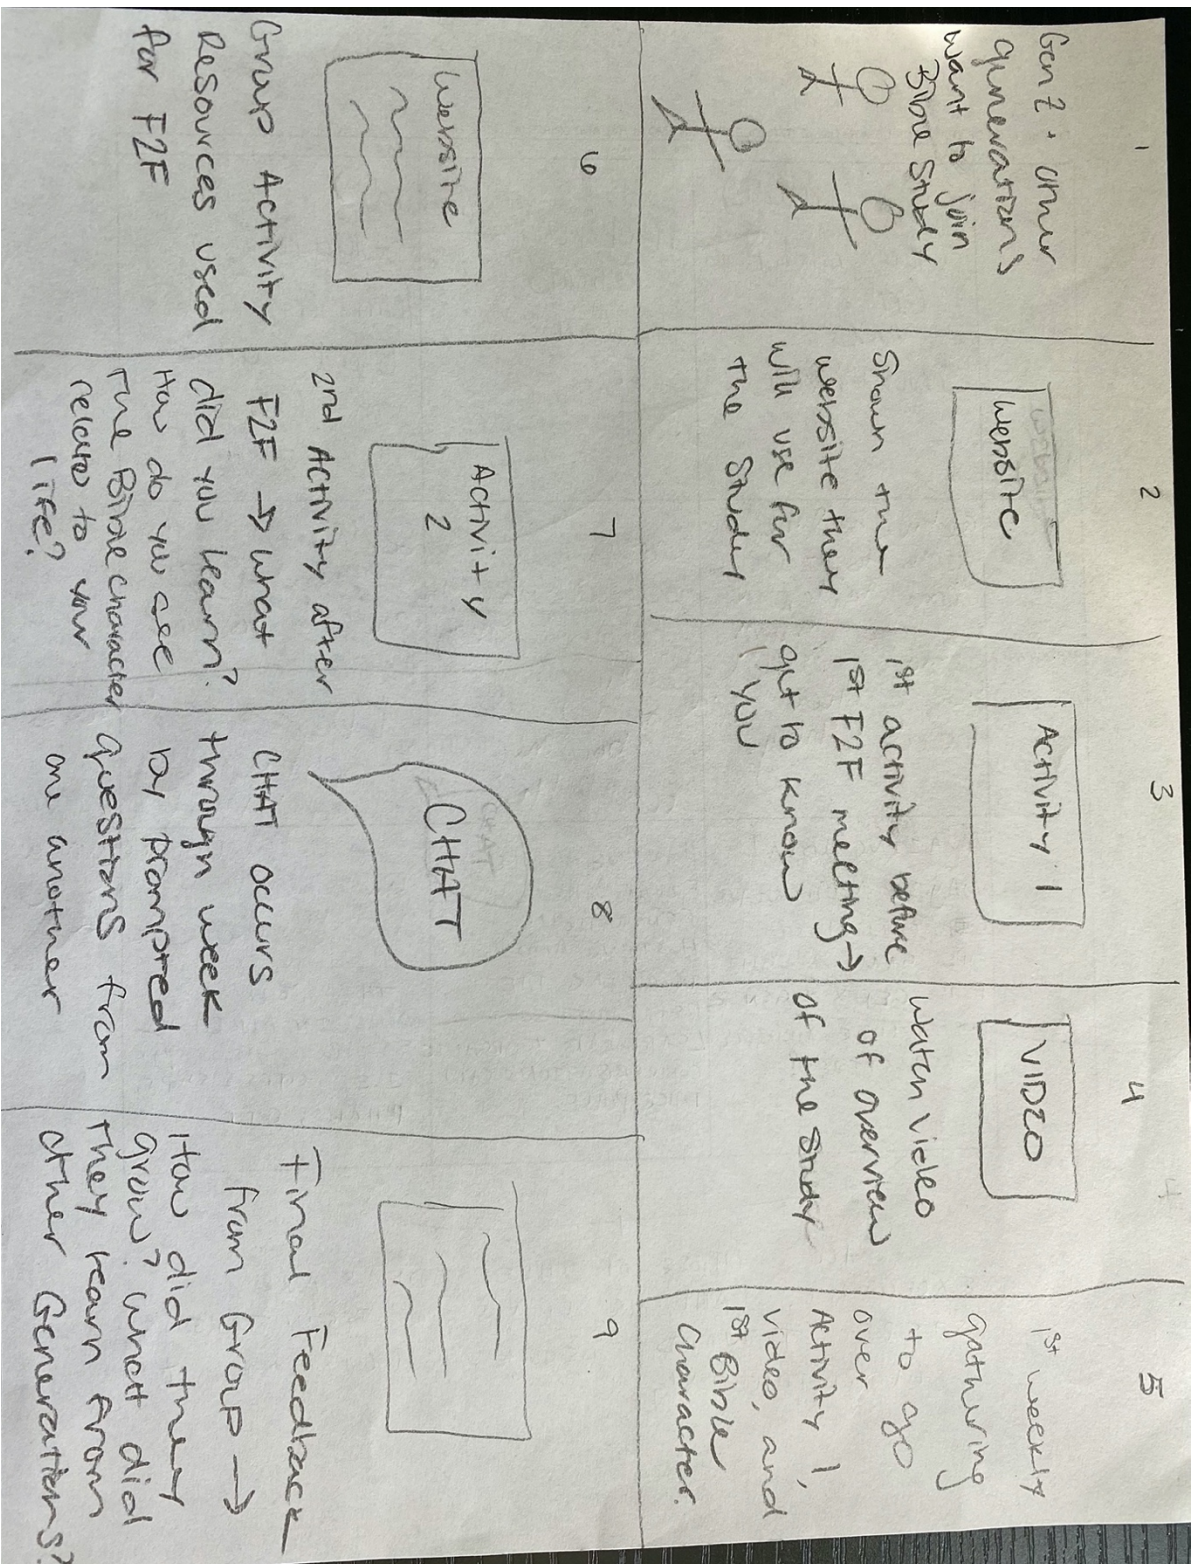 1
Gen Z + other
generations
want to join
Bible Study
2
Website
Shown the
website they
will use for
the Study
3
Activity 1
1st activity before
1st F2F meeting →
get to know
you
4
VIDEO
Watch video
of overview
of the study
5
1st weekly
gathering
to go
over
Activity 1,
video, and
1st Bible
Character.
6
Website
Group Activity
Resources used
for F2F
7
Activity
2
2nd Activity after
F2F → what
did you learn?
How do you see
the Bible character
relate to your
life?
8
CHAT
CHAT occurs
through week
by prompted
questions from
one another
9
Final Feedback
from Group →
How did they
grow? What did
they learn from
other Generations?